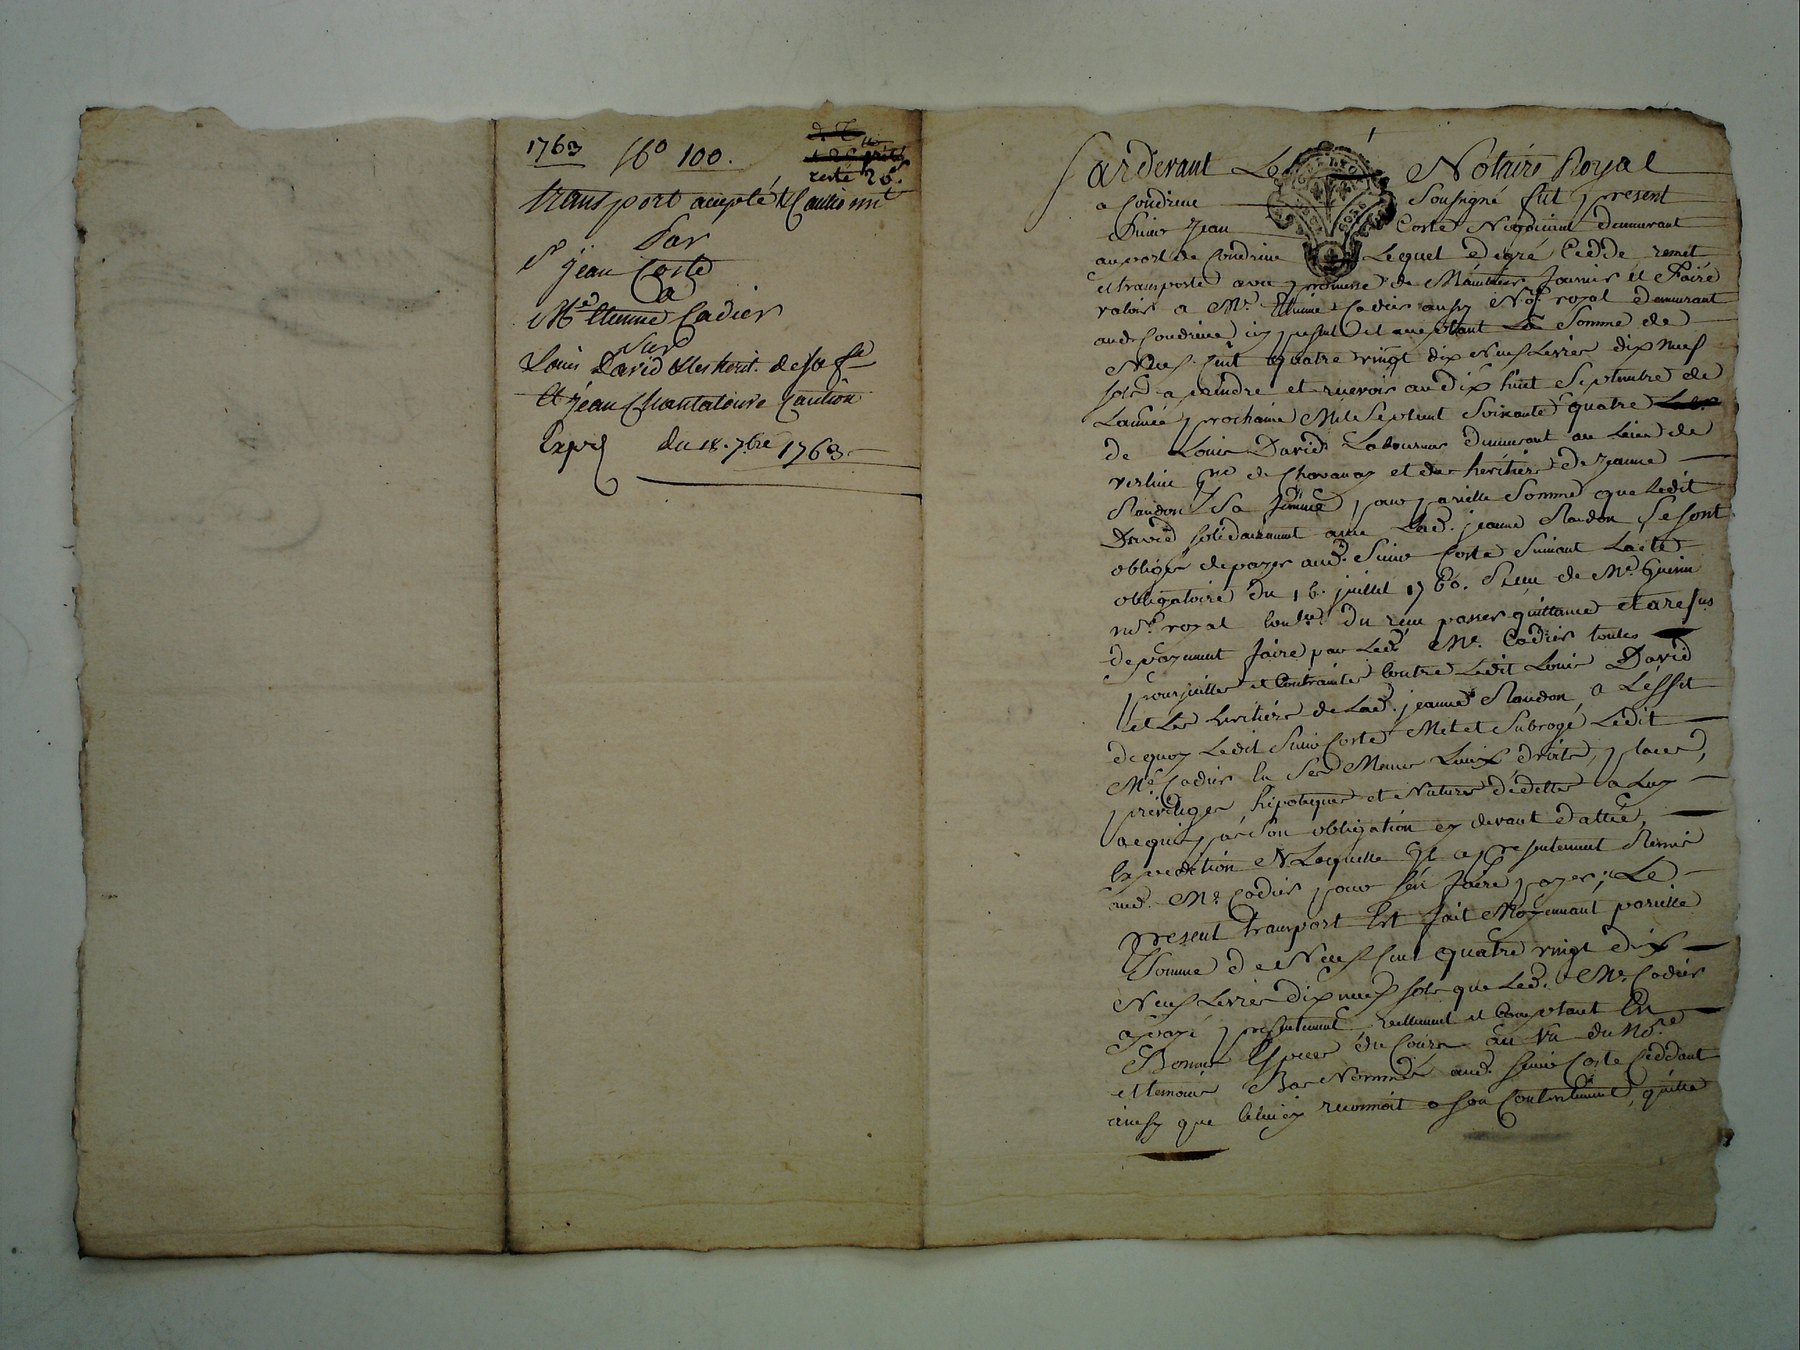 1763
f.o 100.
reste 26.
transport accepté & Cautionnt
Par
Sr jean Coste
a
Me Etienne Cadier
Sur
Louis David & les herit. de sa fe
Et jean Chantaloive Caution
Expé du 18. 7bre 1763
Pardevant Le Notaire Royal
a Condrieu Soussigné fut present
Sieur Jean Coste Negociant demeurant
au port de Condrieu Lequel de gré Cedde remet
et transporte avec promesse de Maintenir fournir et Faire
valoir a Me Etienne Cadier aussy Nore royal demeurant
aud. Condrieu icy present et acceptant La Somme de
Neuf Cent quatre vingt dix Neuf Livres dix neuf
sols a prendre et recevoir au dix huit Septembre de
L'année prochaine Mil Sept Cent Soixante quatre
de Louis David Laboureur demeurant au Lieu de
verlieu de Chavanay et des heritiers de Jeanne
Raudon Sa femme, pour pareille Somme que Ledit
David solidairement avec Lad. jeanne Raudon se sont
obligés de payer aud. Sieur Coste Suivant L'acte
obligatoire du 16. juillet 1760. Receu de Me Guerin
nore royal du receu passer quittance et a refus
de payement faire par Led. Me. Cadier toutes
poursuittes et Contraintes Contre Ledit Louis David
et Les heritiers de Lad. jeanne Raudon, a L'effet
de quoy Ledit Sieur Coste Met et Subroge Ledit
Me Cadier en Ses Meme Lieux, droits, places,
privileges hipoteques et Nature de dettes a Luy
acquis par Son obligation cy devant dattée,
Expedition de Laquelle Il a presentement Remis
aud. Me Cadier pour s'en faire payer; Le
present transport Est fait Moyennant pareille
Somme de Neuf Cent quatre vingt dix
Neuf Livres dix neuf sols que Led. Me. Cadier
a payé presentement reellement et Comptant En
Bonnes Especes du Cours au Vu du Nore
et temoins Bas Nommés aud. Sieur Coste Ceddant
ainsy que celuicy reconnoit a son Contentement, quitte